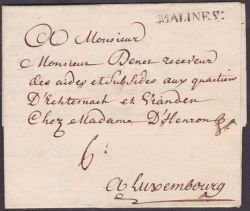 MALINES
A Monsieur
Monsieur Denet receveur
des aides et Subsides aux quartiers
D'Echternach et Vianden
Chez Madame D'Henron
6
A Luxembourg